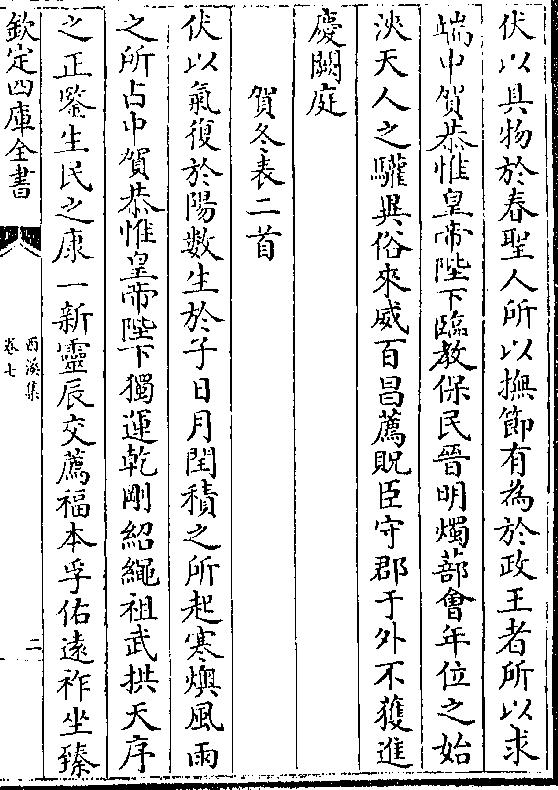 伏以具物於春聖人所以撫節有為於政王者所以求
端中賀恭惟皇帝陛下臨教保民晉明燭蔀會年位之始
浹天人之驩異俗來威百昌薦貺臣守郡于外不獲進
慶闕庭
賀冬表二首
伏以氣復於陽數生於子日月閏積之所起寒燠風雨
之所占中賀恭惟皇帝陛下獨運乾剛紹繩祖武拱天序
之正鑒生民之康一新靈辰交薦福本孚佑遠祚坐臻
欽定四庫全書
西溪集
卷七
二